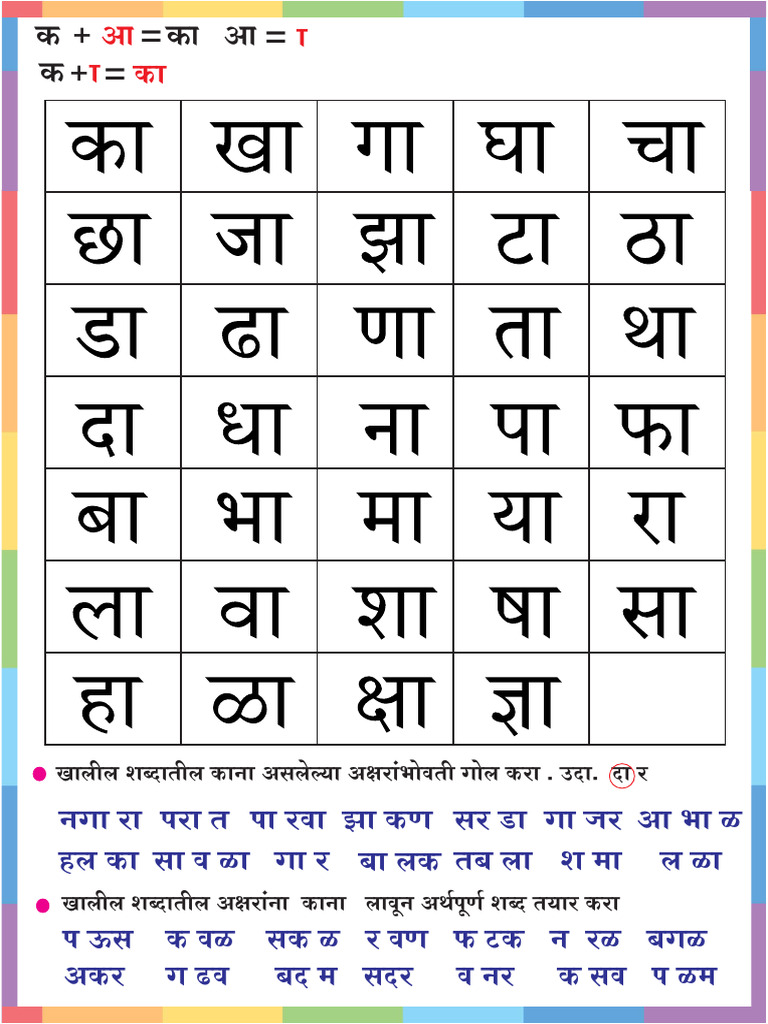 क + आ = का आ = ा
क + ा = का
का खा गा घा चा
छा जा झा टा ठा
डा ढा णा ता था
दा धा ना पा फा
बा भा मा या रा
ला वा शा षा सा
हा ळा क्षा ज्ञा
खालील शब्दातील काना असलेल्या अक्षरांभोवती गोल करा . उदा. दा र
नगा रा परा त पा रवा झा कण सर डा गा जर आ भा ळ
हल का सा व ळा गा र बा लक तब ला श मा ल ळा
खालील शब्दातील अक्षरांना काना लावून अर्थपूर्ण शब्द तयार करा
प ऊस क वळ सक ळ र वण फ टक न रळ बगळ
अकर ग ढव बद म सदर व नर क सव प ळम